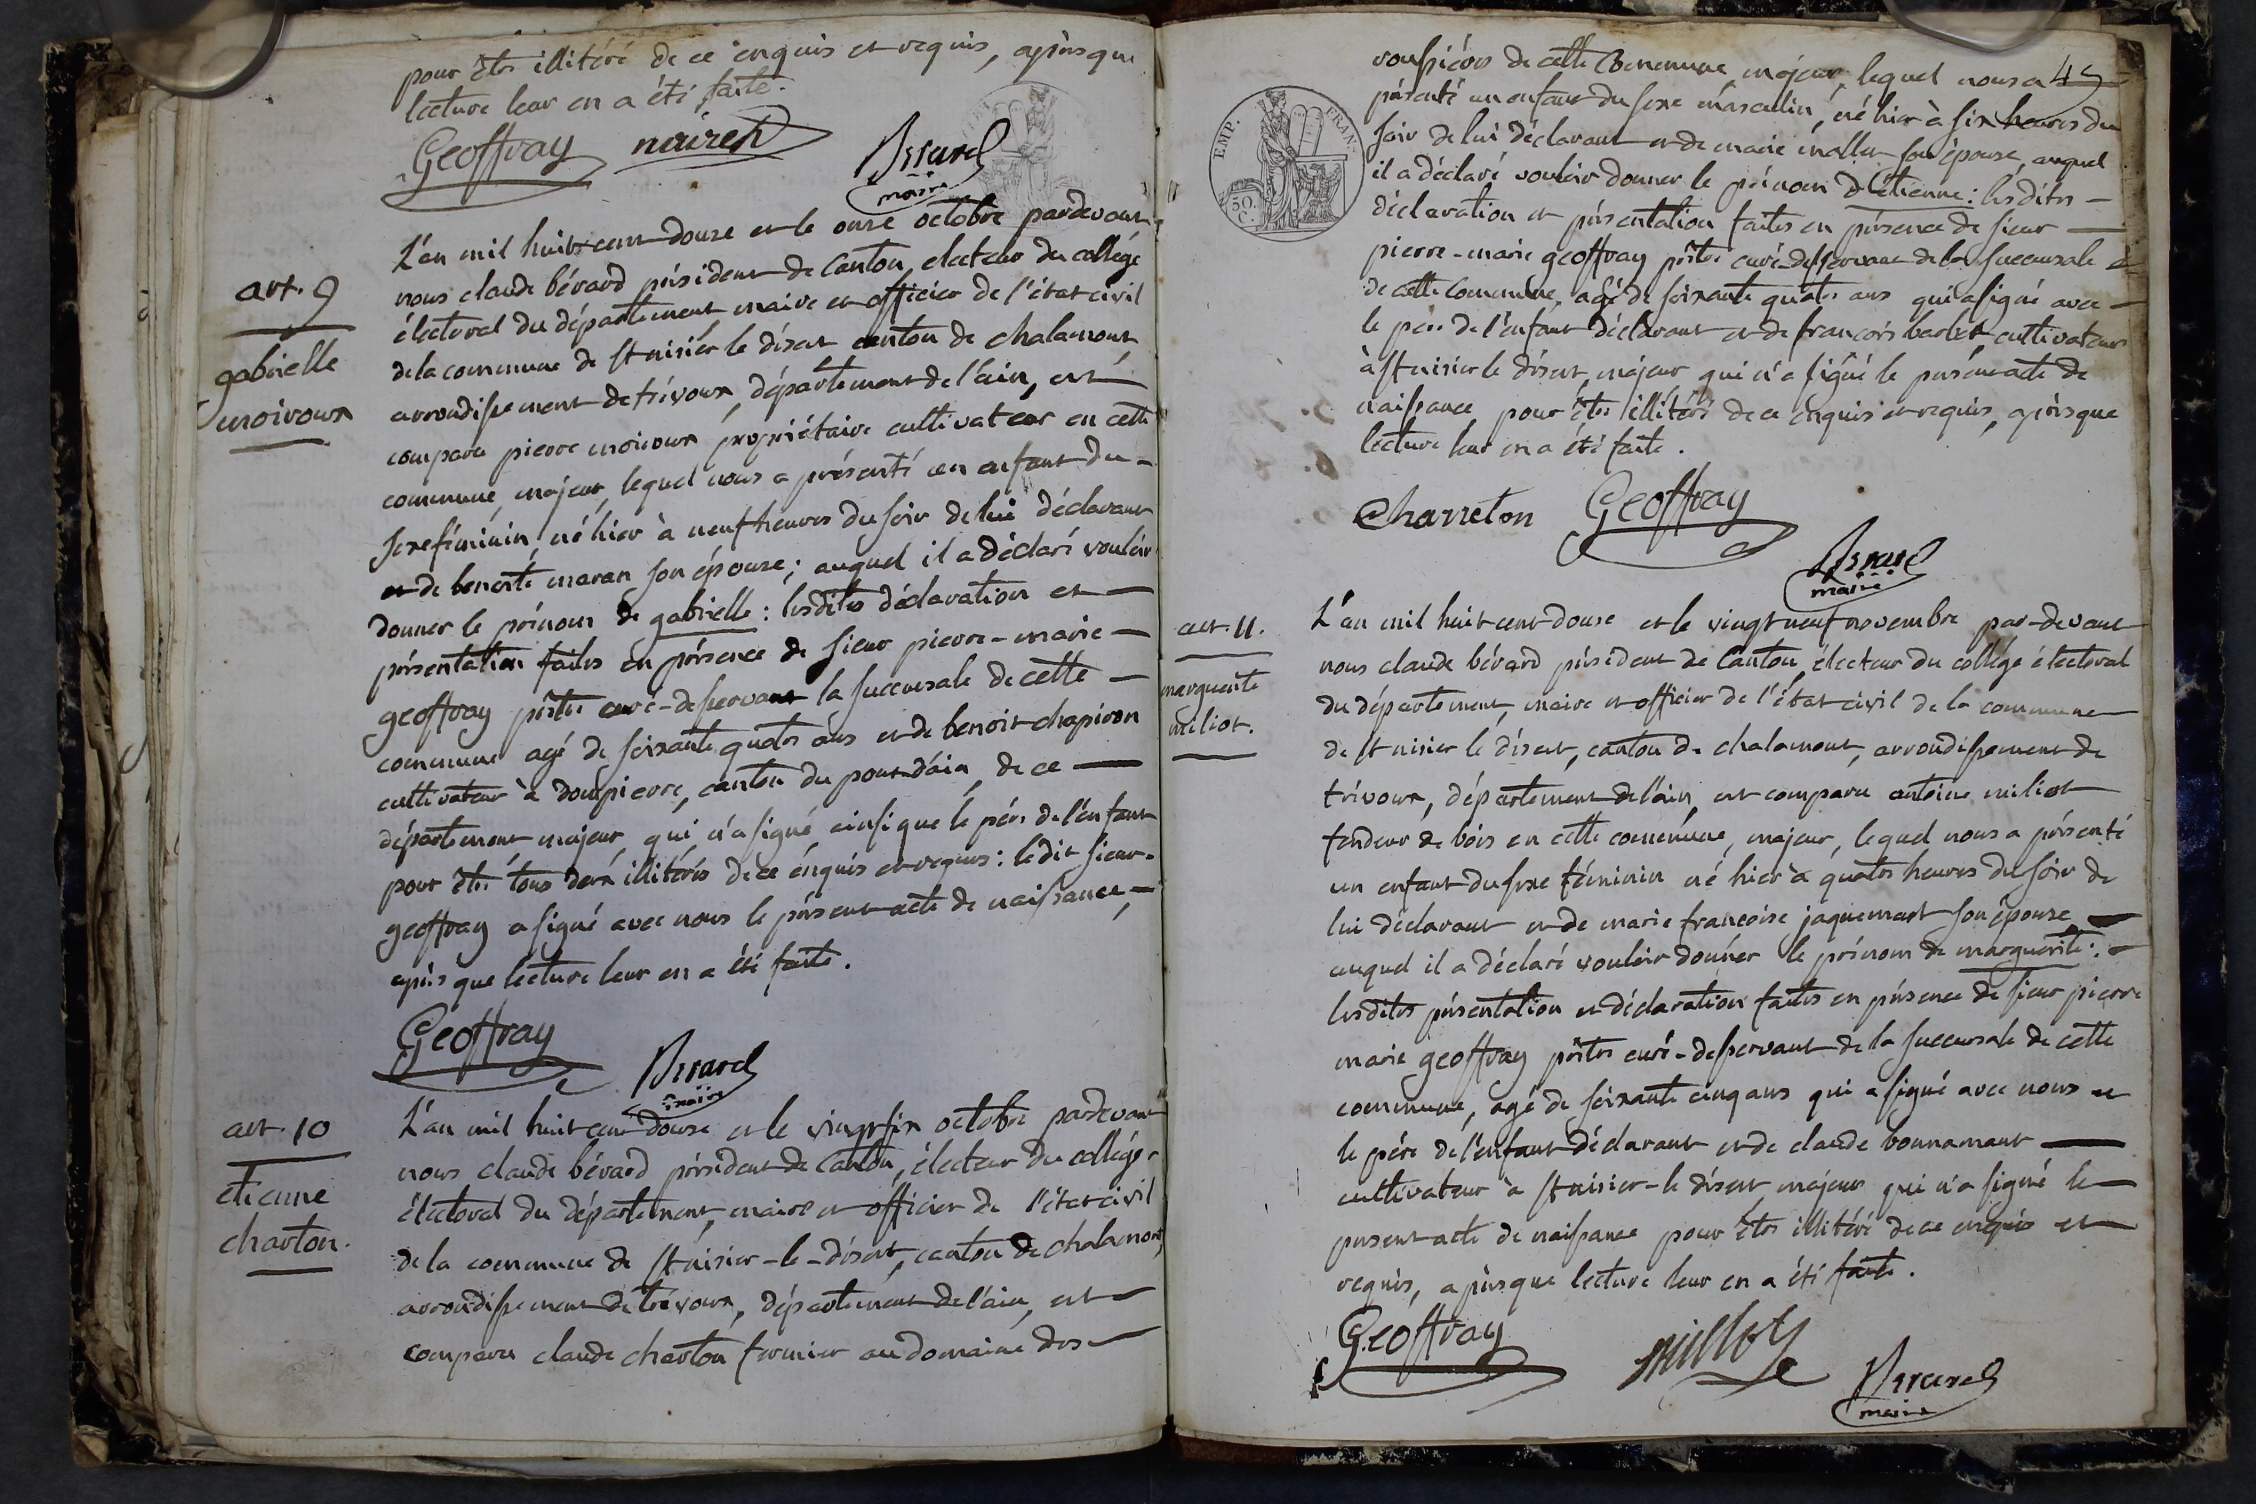 pour être illitéré de ce enquis et requis, après que
lecture leur en a été faite.
Geoffray
nairet
Berard
maire
art. 9
gabrielle
moiroux
L'an mil huit cent douze et le onze octobre pardevant
nous claude bérard président de Canton, electeur du collége
électoral du département maire et officier de l'état civil
de la commune de St nisier le désert canton de chalamont
arrondissement de trévoux, département de l'ain, est
comparu pierre moiroux propriétaire cultivateur en cette
commune, majeur, lequel nous a présenté un enfant du
sexe féminin, né hier à neuf heures du soir de lui déclarant
et de benoite maran son épouse; auquel il a déclaré vouloir
donner le prénom de gabrielle: lesdites déclaration et
présentation faites en présence de sieur pierre-marie
geoffray prêtre curé-desservant la succursale de cette
commune agé de soixante quatre ans et de benoit chapiron
cultivateur à dompierre, canton du pont-d'ain, de ce
département majeur, qui n'a signé ainsi que le père de l'enfant
pour être tous deux illitérés de ce enquis et requis: le dit sieur
geoffray a signé avec nous le présent acte de naissance,
après que lecture leur en a été faite.
Geoffray
Berard
maire
art. 10
étienne
charton.
L'an mil huit cent douze et le vingt six octobre pardevant
nous claude bérard président de Canton, électeur du collége
électoral du département, maire et officier de l'état civil
de la commune de St nisier-le-désert, canton de chalamont,
arrondissement de trévoux, département de l'ain, est
comparu claude charton fermier au domaine des
45
EMP. FRAN.
50 C.
soupières de cette Commune, majeur, lequel nous a
présenté un enfant du sexe masculin, né hier à six heures du
soir de lui déclarant et de marie mallet son épouse, auquel
il a déclaré vouloir donner le prénom d'étienne: lesdites
déclaration et présentation faites en présence de sieur
pierre-marie geoffray prêtre curé-desservant de la succursale
de cette Commune, agé de soixante quatre ans qui a signé avec
le père de l'enfant déclarant et de françois barlet cultivateur
à St nisier le désert, majeur qui n'a signé le présent acte de
naissance pour être illitéré de ce enquis et requis, après que
lecture leur en a été faite.
Charreton
Geoffray
Berard
maire
art. 11.
marguerite
miliot.
L'an mil huit cent douze et le vingt neuf novembre par-devant
nous claude bérard président de Canton, électeur du collége électoral
du département, maire et officier de l'état civil de la commune
de St nisier le désert, canton de chalamont, arrondissement de
trévoux, département de l'ain, est comparu antoine miliot
fendeur de bois en cette commune, majeur, lequel nous a présenté
un enfant du sexe féminin né hier à quatre heures du soir de
lui déclarant et de marie françoise jaquemart son épouse
auquel il a déclaré vouloir donner le prénom de marguerite:
lesdites présentation et déclaration faites en présence de sieur pierre
marie geoffray prêtre curé-desservant de la succursale de cette
commune, agé de soixante cinq ans qui a signé avec nous et
le père de l'enfant déclarant et de claude bonnamant
cultivateur à St nisier-le désert, majeur qui n'a signé le
présent acte de naissance pour être illitéré de ce enquis et
requis, après que lecture leur en a été faite.
Geoffray
milloz
Berard
maire